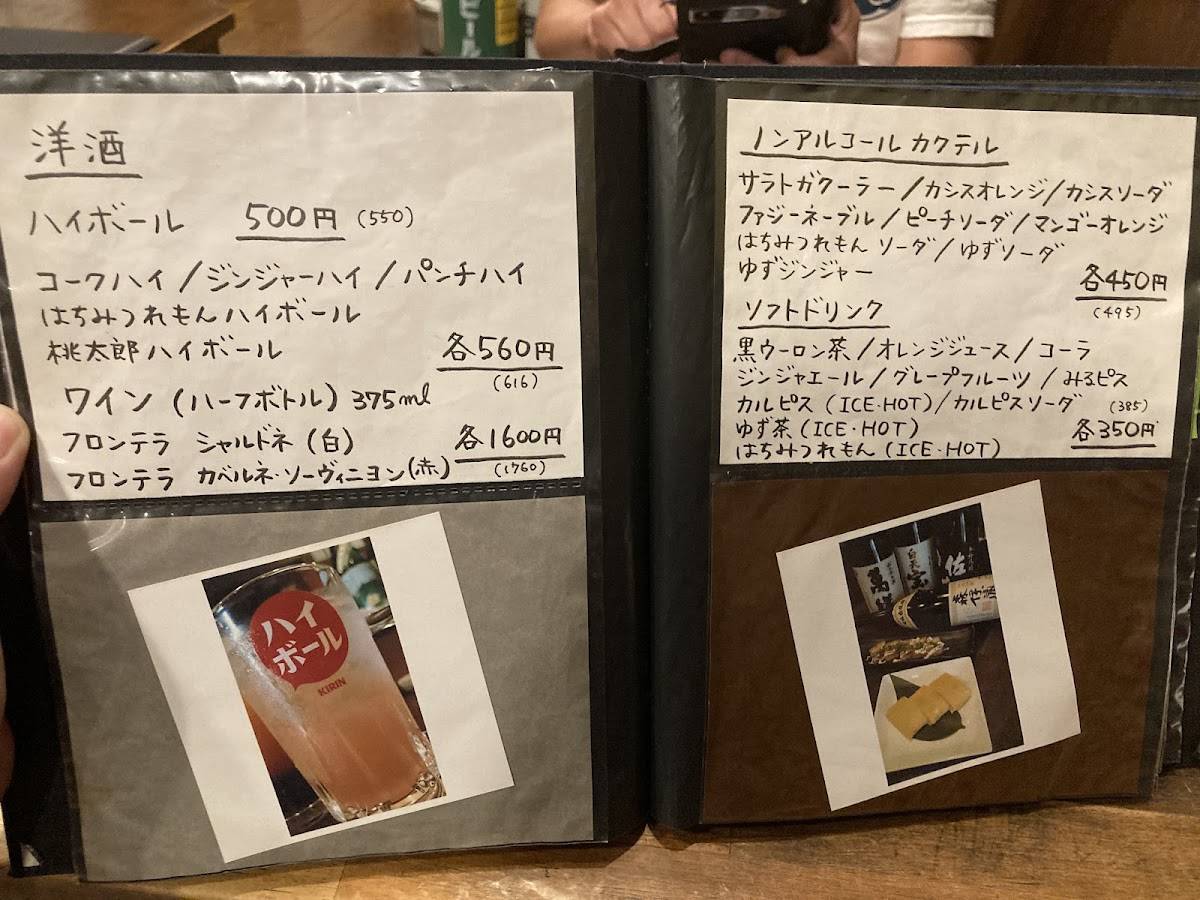 洋酒
ハイボール 500円 (550)
コークハイ/ジンジャーハイ/パンチハイ
はちみつれもんハイボール
桃太郎ハイボール 各560円
(616)
ワイン (ハーフボトル) 375ml
フロンテラ シャルドネ (白) 各1600円
フロンテラ カベルネ・ソーヴィニヨン(赤) (1760)
ハイ
ボール
KIRIN
ノンアルコール カクテル
サラトガクーラー/カシスオレンジ/カシスソーダ
ファジーネーブル/ピーチソーダ/マンゴーオレンジ
はちみつれもん ソーダ/ゆずソーダ
ゆずジンジャー 各450円
(495)
ソフトドリンク
黒ウーロン茶/オレンジジュース/コーラ
ジンジャエール/グレープフルーツ/みるピス
カルピス (ICE・HOT)/カルピスソーダ (385)
ゆず茶 (ICE・HOT) 各350円
はちみつれもん (ICE・HOT)
宝
佐